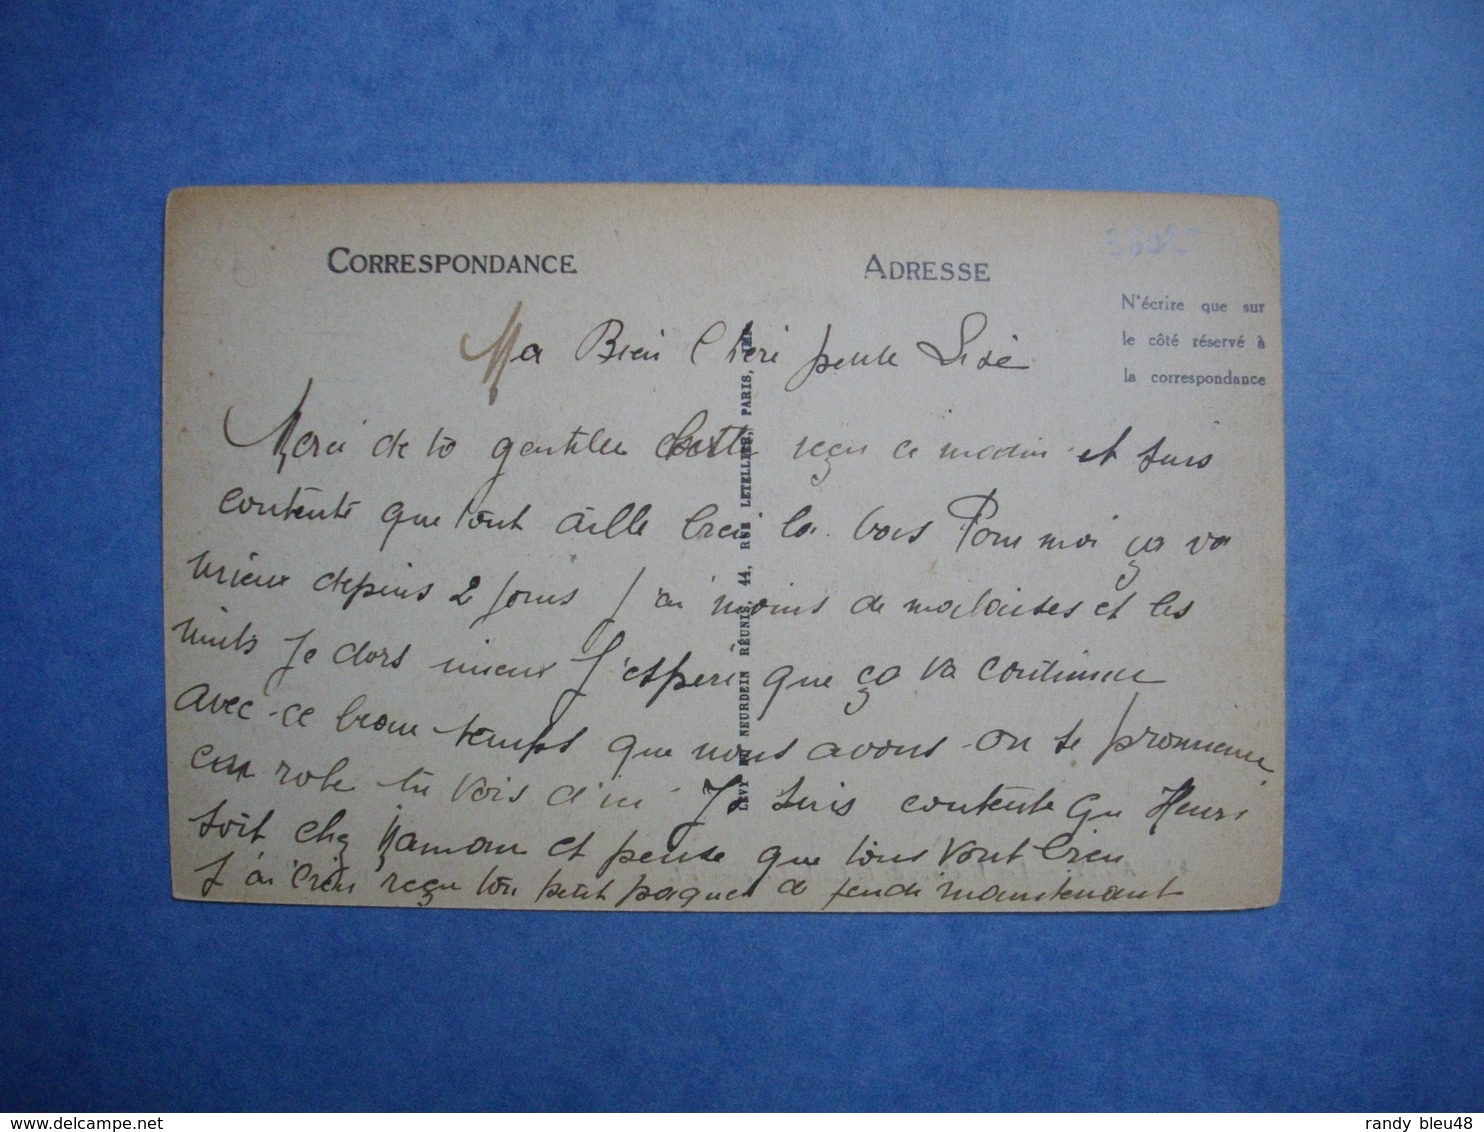 CORRESPONDANCE
ADRESSE
N'écrire que sur
le côté réservé à
la correspondance
Ma Bien Chère petite Lisè
Merci de ta gentille reçu ce matin et suis
contente que tout aille bien la bas Pour moi ça va
mieux depuis 2 jours J'ai moins de malaises et les
nuits Je dors mieux J'espère que ça va continuer
avec ce beau temps que nous avons on se promène
en robe tu vois d'ici Je suis contente que Henri
soit chez Maman et pense que tous vont bien
J'ai bien reçu ton petit paquet maintenant
LEVY ET NEURDEIN RÉUNIS, 44, RUE LETELLIER, PARIS, IMP.
delcampe.net
randy_bleu48